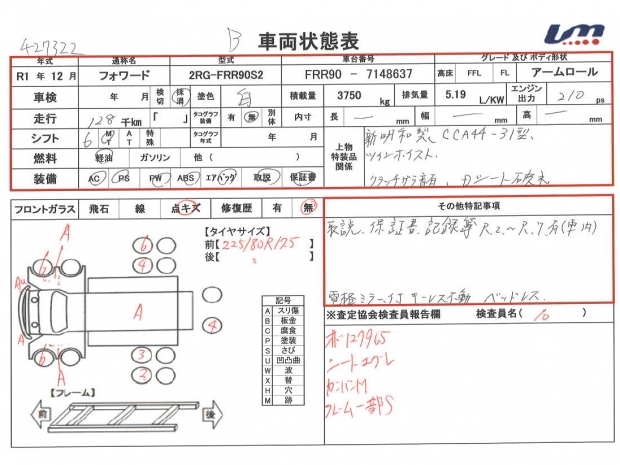 427322 B 車両状態表 um
年式 通称名 型式 車台番号 グレード 及び ボディ形状
R1 年 12 月 フォワード 2RG-FRR90S2 FRR90 - 7148637 高床 FFL FL アームロール
車検 年 月 検切 抹消 塗色 白 積載量 3750 kg 排気量 5.19 L/KW エンジン出力 210 ps
走行 128 千km 「 」 タコグラフ装備 有 無 別体 内寸 長 — mm 幅 — mm 高 — mm
シフト 6 MT AT 特殊 タコグラフ年式 年 上物特装品関係 新明和製、CCA44-31型、
燃料 軽油 ガソリン 他 ( ) ツインホイスト.
装備 AC PS PW ABS エアバック 取説 保証書
フロントガラス 飛石 線 点キズ 修復歴 有 無 その他特記事項
取説、保証書、記録簿 R.2.~R.7.有(車内)
【タイヤサイズ】
前【225/80R17.5】
後【 〃 】
A 6 4 6 6 Au A A 4 A 6 3 2
電格ミラー、キーレス不動 ベッドレス.
記号
A スリ傷
B 板金
C 腐食
P 塗装
S さび
U 凹凸曲
W 波
X 替
H 穴
M 跡
※査定協会検査員報告欄 検査員名( )
127965
シートエグレ
カンバンM
フレーム一部S
【フレーム】
前 後